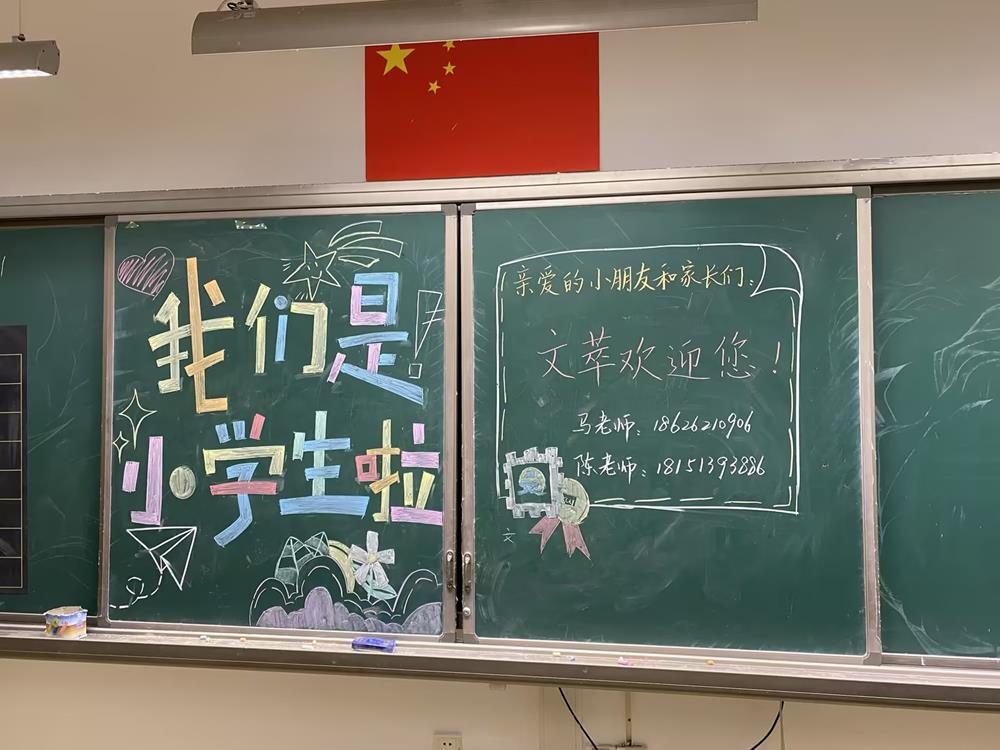 我们是!
小学生啦
亲爱的小朋友和家长们:
文萃欢迎您!
马老师: 18626210906
陈老师: 18151393886
文